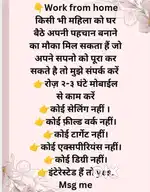 👉Work from home
किसी भी महिला को घर
बैठे अपनी पहचान बनाने
का मौका मिल सकता हैं जो
अपने सपनो को पूरा कर
सकते है तो मुझे संपर्क करें
👉 रोज़ २-३ घंटे मोबाईल
से काम करें
👉कोई सेलिंग नहीं ।
👉कोई फ़ील्ड वर्क नहीं।
👉कोई टार्गेट नहीं।
👉कोई एक्सपीरियंस नहीं।
👉कोई डिग्री नहीं।
👉इंटेरेस्टेड हैं तो yes.
Msg me